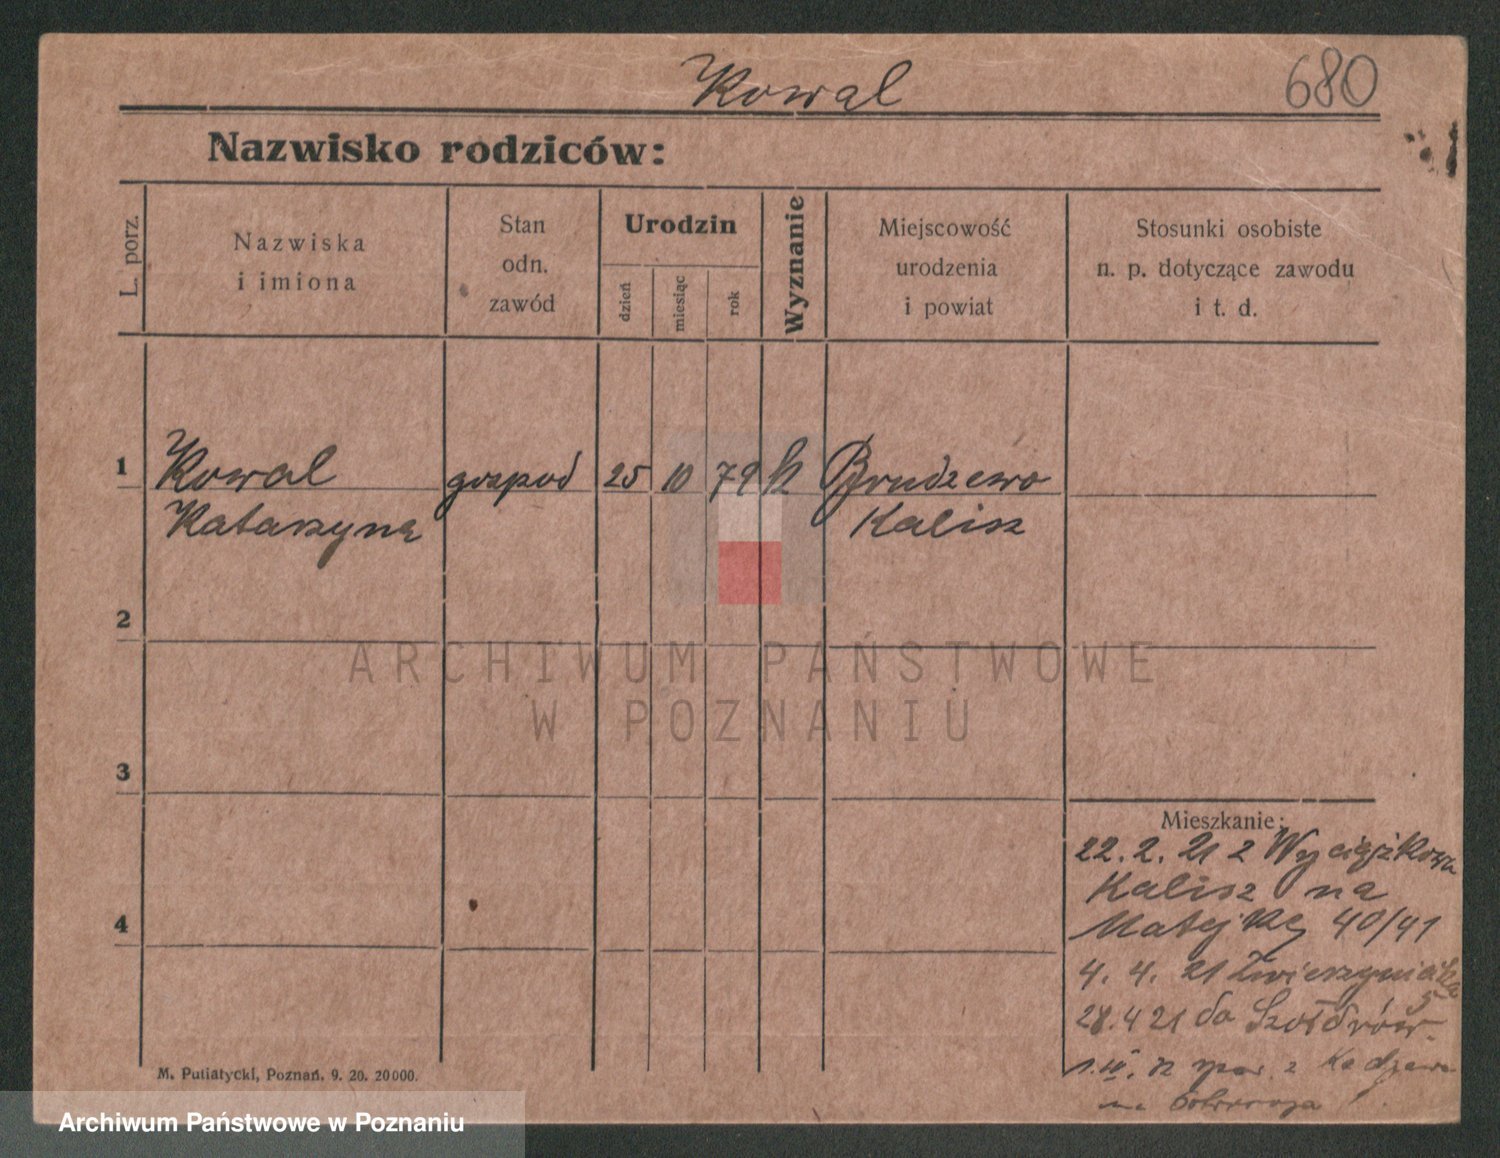 Kowal
680
Nazwisko rodziców:
L. porz.
Nazwiska
i imiona
Stan
odn.
zawód
Urodzin
dzień
miesiąc
rok
Wyznanie
Miejscowość
urodzenia
i powiat
Stosunki osobiste
n. p. dotyczące zawodu
i t. d.
1
Kowal gospod 25 10 79 k Brudzewo
Katarzyna Kalisz
2
ARCHIWUM PAŃSTWOWE
W POZNANIU
3
Mieszkanie:
22. 2. 21 z
Kalisz na
Matejki 40/41
4
4. 4. 21 Zwierzyniecka
5
28.4 21 do
z
M. Putiatycki, Poznań. 9. 20. 20000.
Archiwum Państwowe w Poznaniu